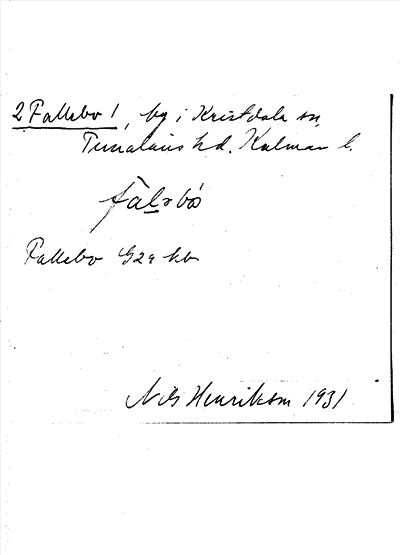 2 Fallebo 1, by i Kristdala sn,
Tunaläns hd. Kalmar l.
fàlәbó
Fallebo G2a kb
Nils Henrikson 1931